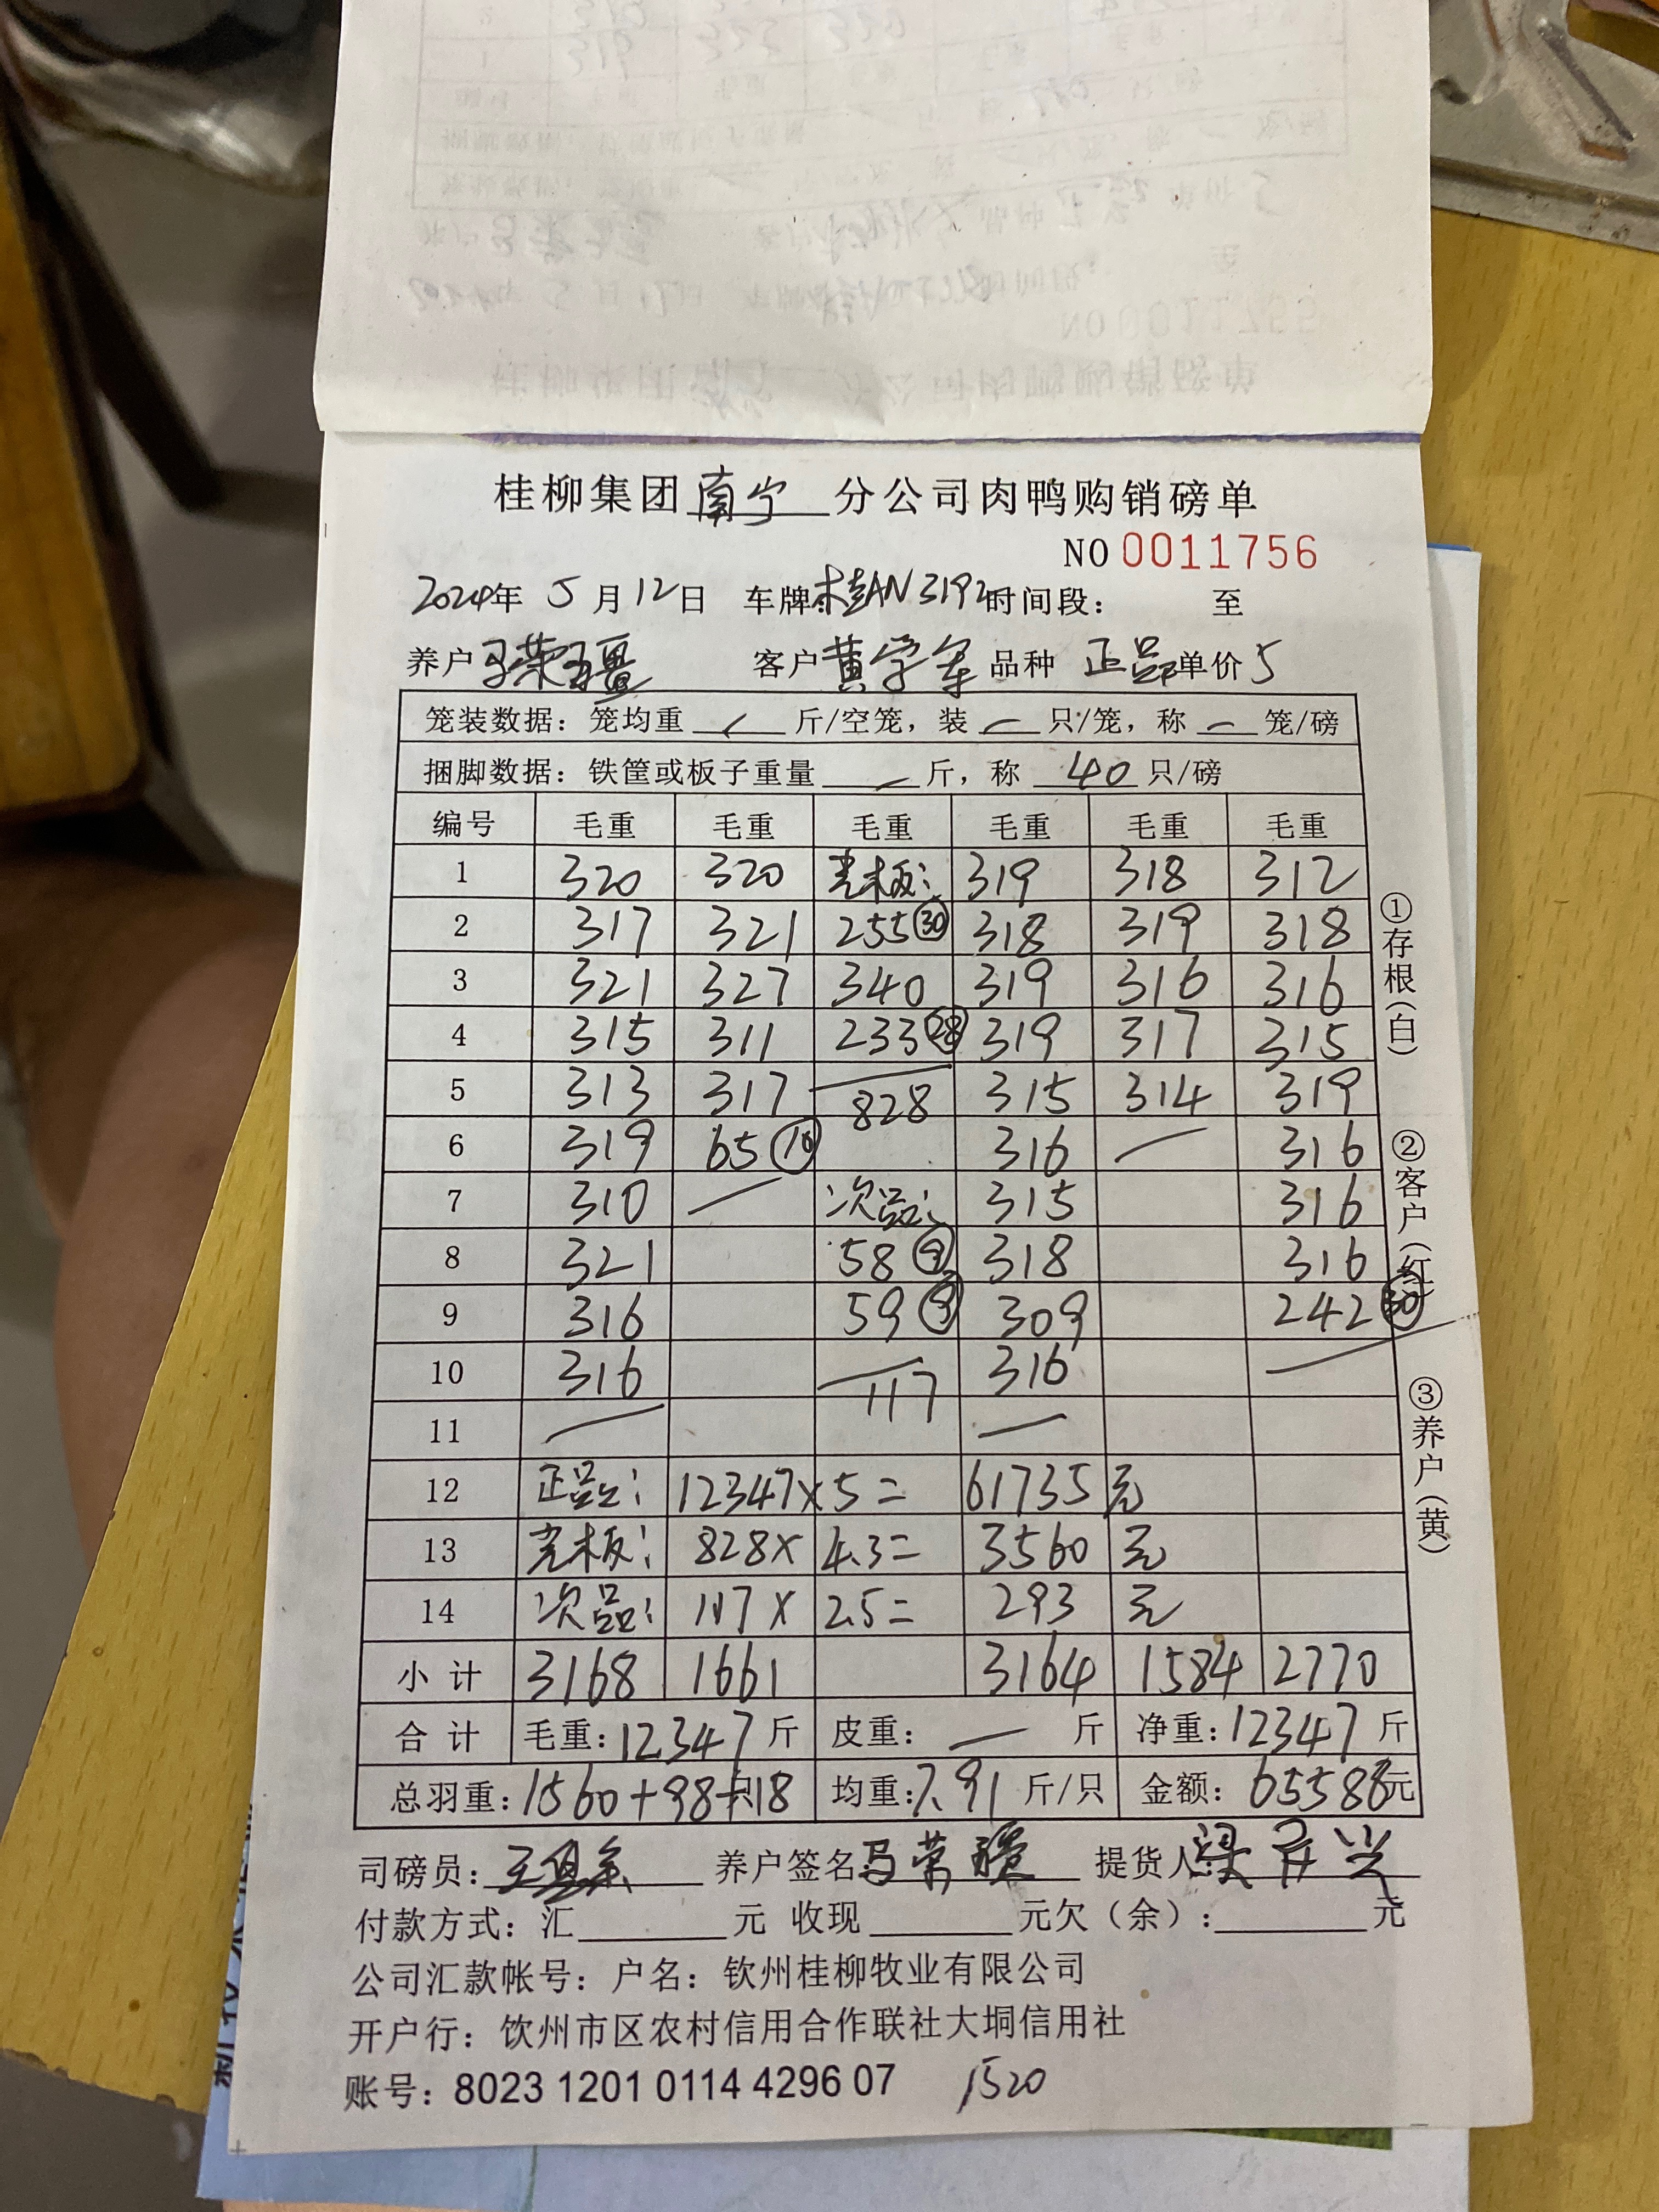 桂柳集团南宁分公司肉鸭购销磅单
NO 0011756
2024年 5月12日 车牌:桂AN3192 时间段: 至
养户 马荣疆 客户 黄学军 品种 正品 单价 5
笼装数据: 笼均重 斤/空笼, 装 — 只/笼, 称 — 笼/磅
捆脚数据: 铁筐或板子重量 — 斤, 称 40 只/磅
编号 毛重 毛重 毛重 毛重 毛重 毛重
1 320 320 光板: 319 318 312
2 317 321 255 ㉚ 318 319 318
3 321 327 340 319 316 316
4 315 311 233 ㉘ 319 317 315
5 313 317 828 315 314 319
6 319 65 ⑩ 316 — 316
7 310 — 次品: 315 316
8 321 58 ⑨ 318 316
9 316 59 ⑨ 309 242 ㉚
10 316 117 316 —
11 — —
12 正品: 12347× 5= 61735 元
13 光板: 828× 4.3= 3560 元
14 次品: 117× 2.5= 293 元
小计 3168 1661 3164 1584 2770
合计 毛重: 12347 斤 皮重: — 斤 净重: 12347 斤
总羽重: 1560+98+18 均重: 7.91 斤/只 金额: 65588元
司磅员: 养户签名: 马荣疆 提货人:
付款方式: 汇 元 收现 元欠(余): 元
公司汇款帐号: 户名: 钦州桂柳牧业有限公司
开户行: 钦州市区农村信用合作联社大垌信用社
账号: 8023 1201 0114 4296 07 1520
①存根(白) ②客户(红) ③养户(黄)